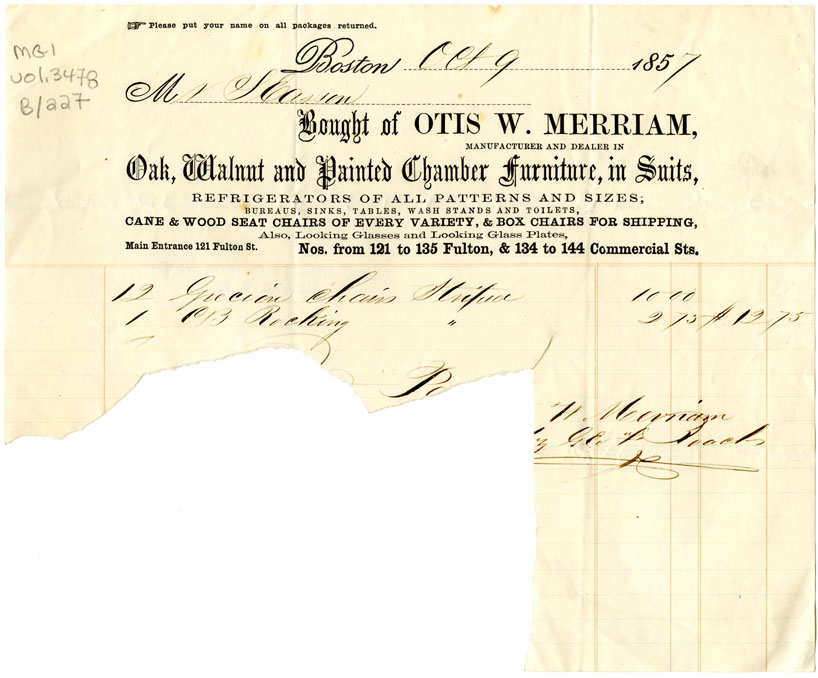 ☞ Please put your name on all packages returned.
MG1
vol.3478
B/227
Boston Oct 9 1857
Mr
Bought of OTIS W. MERRIAM,
MANUFACTURER AND DEALER IN
Oak, Walnut and Painted Chamber Furniture, in Suits,
REFRIGERATORS OF ALL PATTERNS AND SIZES;
BUREAUS, SINKS, TABLES, WASH STANDS AND TOILETS,
CANE & WOOD SEAT CHAIRS OF EVERY VARIETY, & BOX CHAIRS FOR SHIPPING,
Also, Looking Glasses and Looking Glass Plates,
Main Entrance 121 Fulton St. Nos. from 121 to 135 Fulton, & 134 to 144 Commercial Sts.
12 Grecian Chairs 10 00
1 Rocking " 2 75 $12 75
W Merriam
by Geo